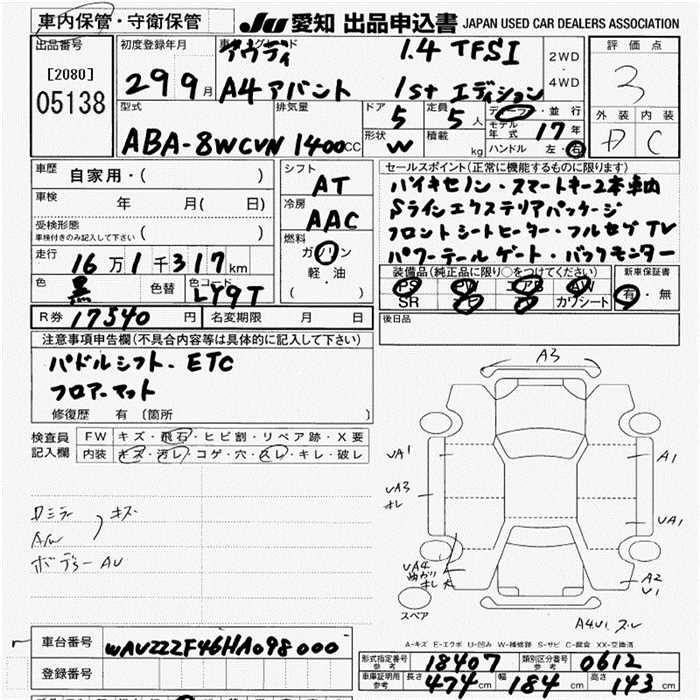 車内保管・守衛保管
JU 愛知 出品申込書 JAPAN USED CAR DEALERS ASSOCIATION
出品番号
[2080]
05138
初度登録年月
29 9月
アウディ 1.4 TFSI
A4 アバント 1st エディション
2WD
・
4WD
評価点
3
外装 内装
D C
型式
ABA-8WCVN
排気量
1400cc
ドア 5
定員 5人
形状 W
積載 kg
ディーラー・並行
モデル年式 17年
ハンドル 左・右
車歴
自家用・( )
車検 年 月( 日)
受検形態
車検付きのみ記入して下さい ( )
走行 16万1千317km
色 黒 色替 色コード LY9T
シフト AT
冷房 AAC
燃料
ガソリン
軽・油
( )
セールスポイント(正常に機能するものに限ります)
バイキセノン・スマートキー2本車内
Sラインエクステリアパッケージ
フロントシートヒーター・フルセグTV
パワーテールゲート・バックモニター
装備品(純正品に限り○をつけてください)
PS PW エアB AW
SR カワシート
新車保証書
有・無
R券 17540円 名変期限 月 日
後日品
注意事項申告欄(不具合内容等は具体的に記入して下さい)
パドルシフト・ETC
フロアーマット
修復歴 有 〔箇所 〕
検査員
記入欄
FW キズ・飛石・ヒビ割・リペア跡・X要
内装 キズ・汚レ・コゲ・穴・スレ・キレ・破レ
ロミラー
A/W
キズ
ボディーAU
A3
UA1
A1
UA3
オレ
UA1
UA4
A2
U1
スペア
A4U1 スレ
A-キズ E-エクボ U-凹み W-補修跡 S-サビ C-腐食 XX-交換済
車台番号 WAUZZZF46HA098000
登録番号
形式指定番号
参考
18407
類別区分番号
参考
0612
車庫証明用
参考
長さ 474cm 幅 184cm 高さ 143cm